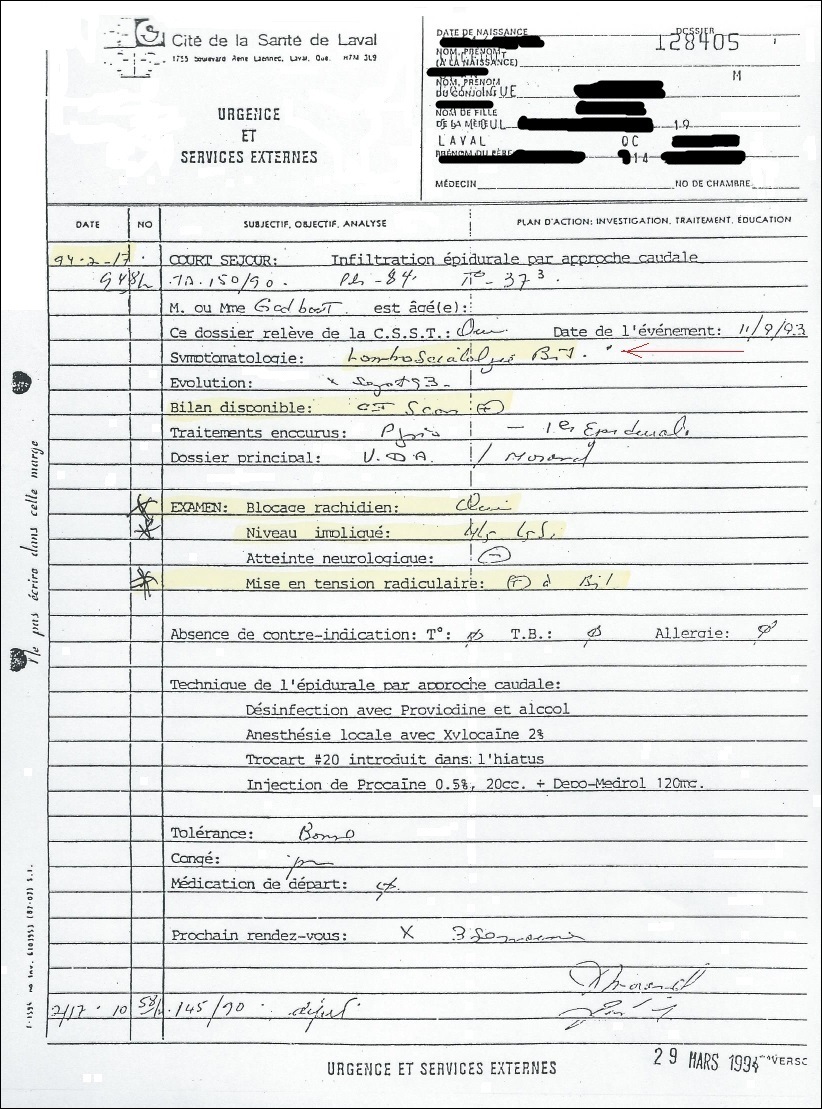 Cité de la Santé de Laval
1755 boulevard René Laennec, Laval, Qué. H7M 3L9
URGENCE
ET
SERVICES EXTERNES
DATE DE NAISSANCE
DOSSIER
128405
NOM, PRÉNOM
(À LA NAISSANCE)
M
NOM, PRÉNOM
DU CONJOINT
NOM DE FILLE
DE LA MÈRE
19
LAVAL QC
PRÉNOM DU PÈRE
514
MÉDECIN NO DE CHAMBRE
DATE NO SUBJECTIF, OBJECTIF, ANALYSE PLAN D'ACTION: INVESTIGATION, TRAITEMENT, ÉDUCATION
94-2-17 COURT SEJOUR: Infiltration épidurale par approche caudale
9 48h TA. 150/90. Pls - 84. T° - 37³.
M. ou Mme Godbout est âgé(e):
Ce dossier relève de la C.S.S.T: Oui Date de l'événement: 11/9/93
Symptomatologie: Lombosciatalgie Bil.
Evolution: x Sept 93
Bilan disponible: CT Scan (+)
Traitements encourus: Physio - 1 Epidurale
Dossier principal: V.D.A. / Morand
EXAMEN: Blocage rachidien: Oui
Niveau impliqué: L4L5 L5S1
Atteinte neurologique: (-)
Mise en tension radiculaire: (+) Bil
Absence de contre-indication: T°: ø T.B.: ø Allergie: ø
Technique de l'épidurale par approche caudale:
Désinfection avec Proviodine et alcool
Anesthésie locale avec Xylocaïne 2%
Trocart #20 introduit dans l'hiatus
Injection de Procaïne 0.5%, 20cc. + Depo-Medrol 120mg.
Tolérance: Bonne
Congé:
Médication de départ: ø
Prochain rendez-vous: X 3 semaines
2/17 10 58h 145/90 départ
Ne pas écrire dans cette marge
URGENCE ET SERVICES EXTERNES
29 MARS 1994
VERSO